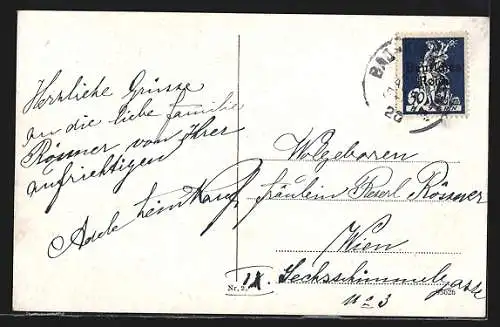 Herzliche Grüsse
an die liebe Familie
Rössner von Ihrer
aufrichtigen
Adele
BAJ
Deutsches
Reich
20
Wolgeboren
fräulein Reserl Rössner
Wien
IX. Sechsschimmelgasse
No 3
Nr. 2.